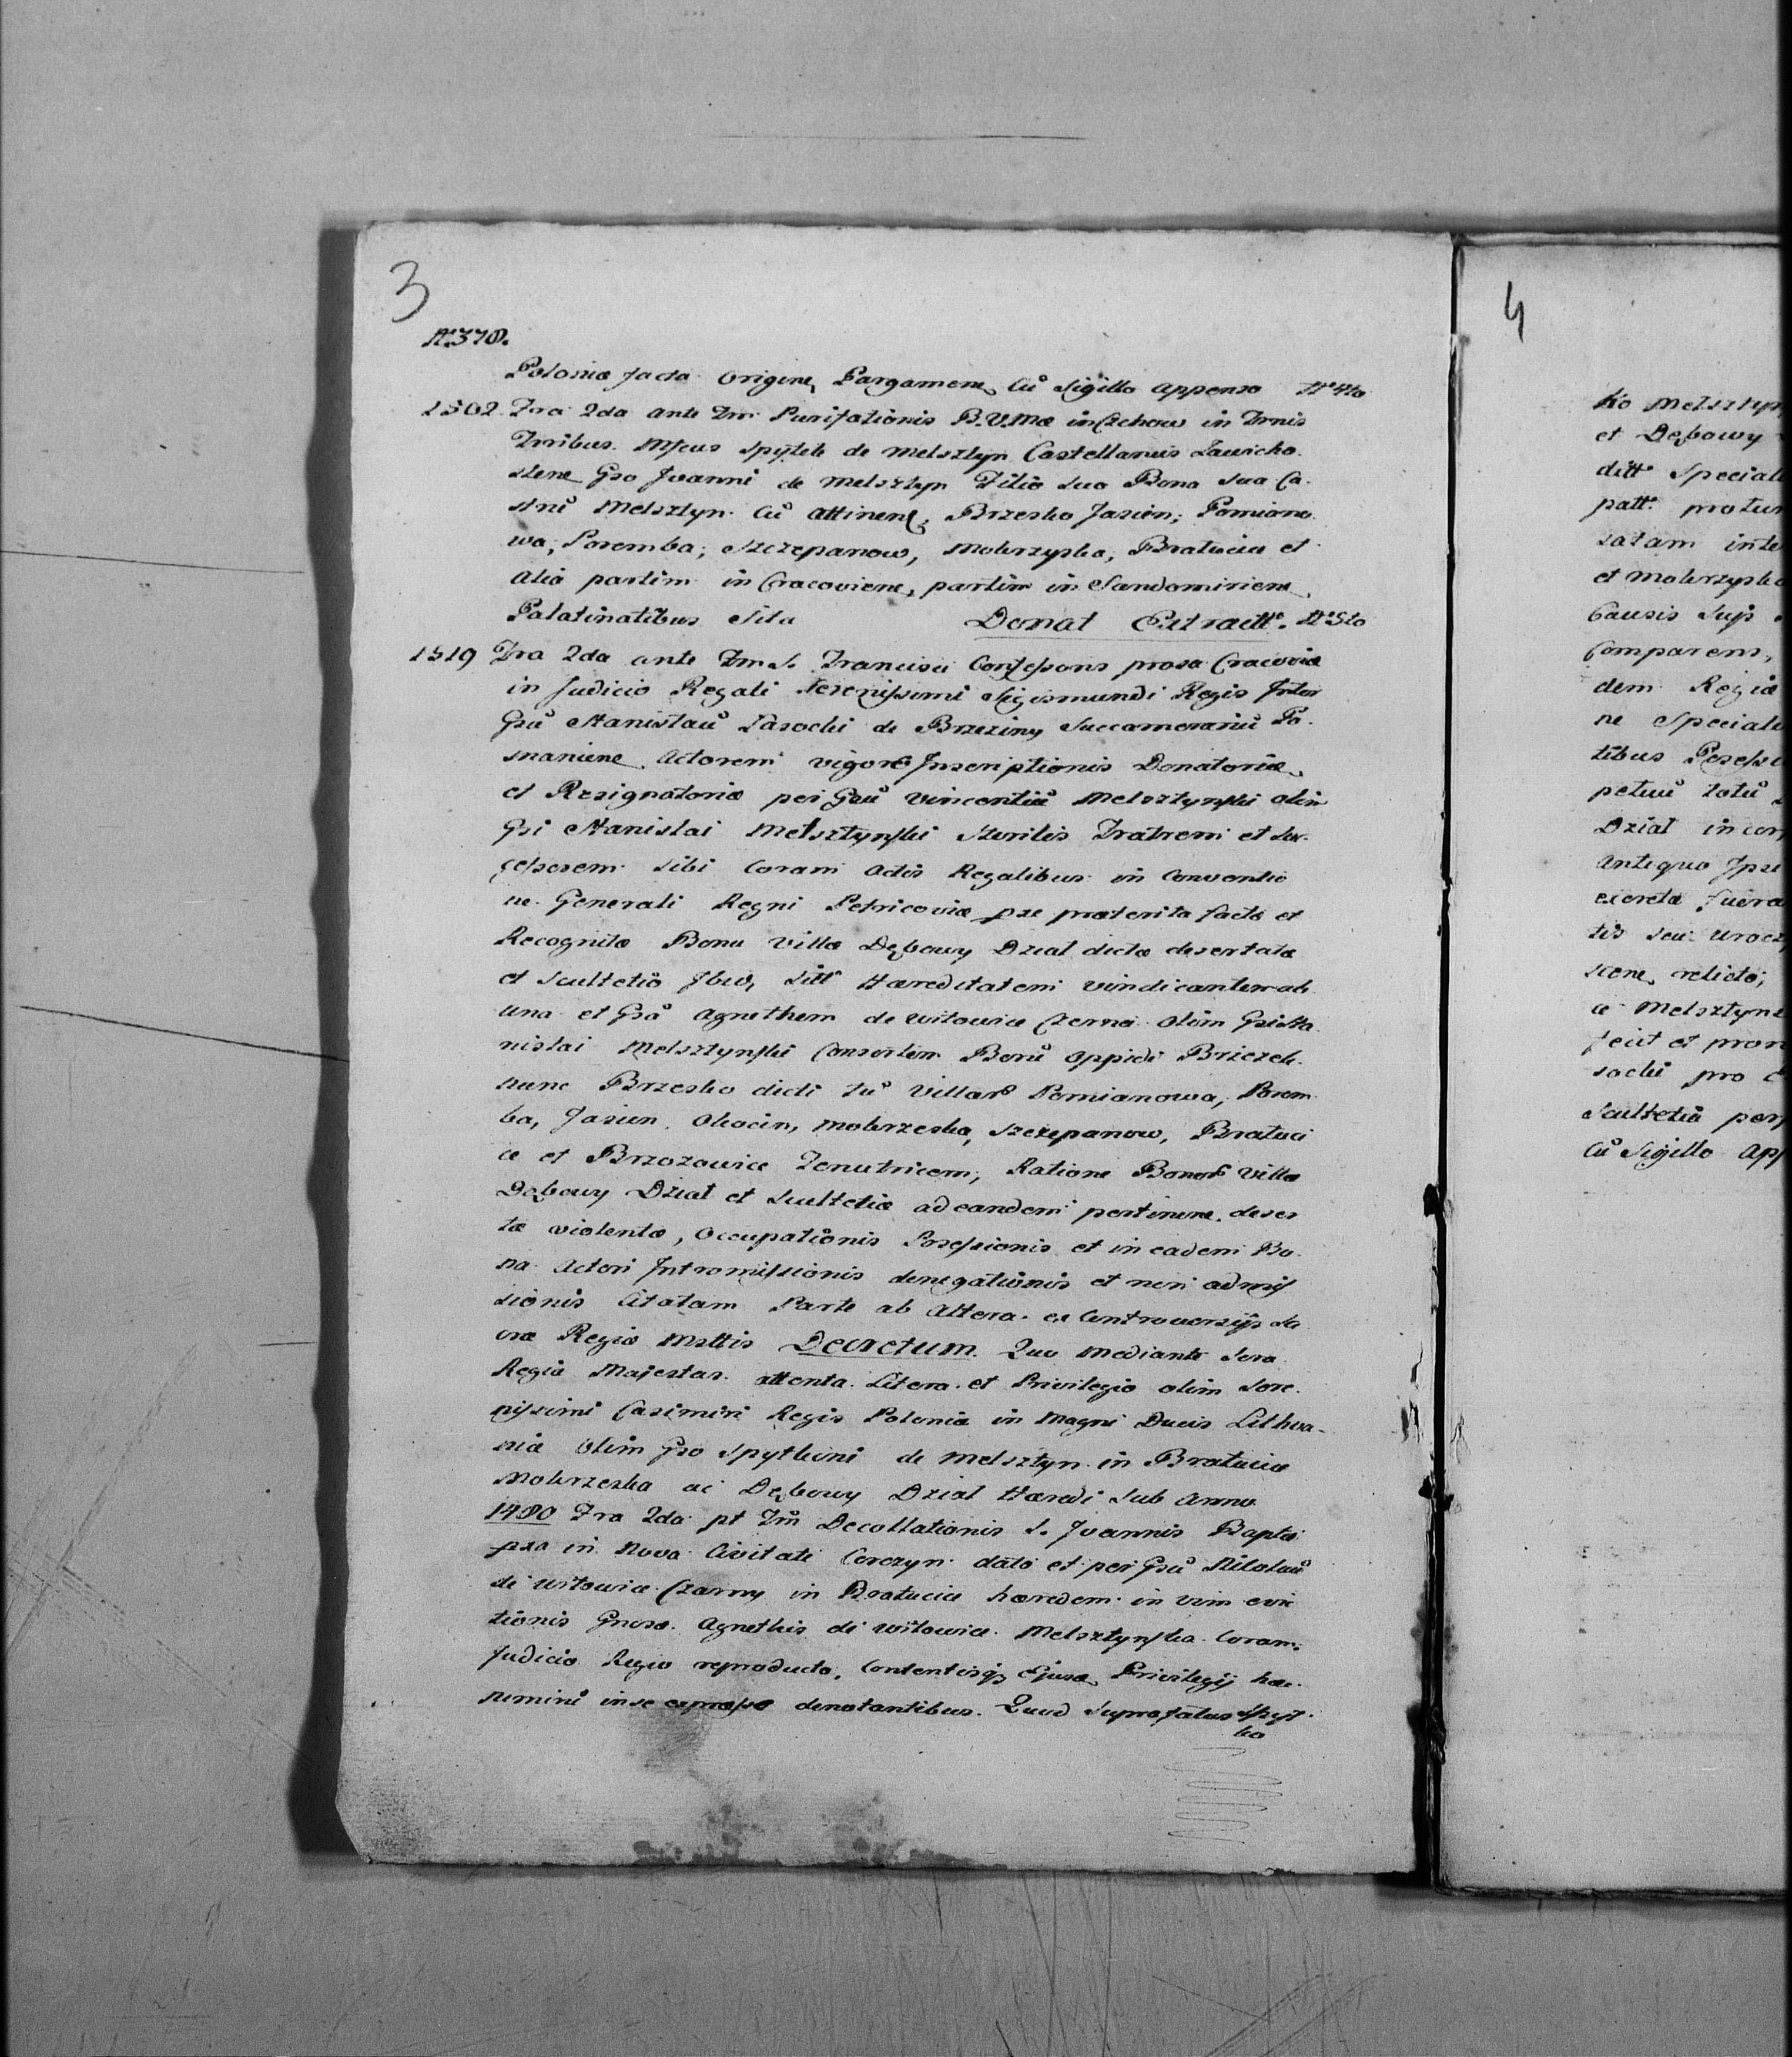 3
N. 378.
Poloniæ facta Origine, Pargamene, Cũ Sigillo appenso Nº 4to
1502 Fra 2da ante Fm Purifationis B.V.Mæ in Czchow in Trnis
Tribus. Mfcus Spytek de Melsztyn Castellanus Zawicho.
stene Gso Joanni de Melsztyn Filio Suo Bona Sua Ca.
strũ Melsztyn Cũ attinen, Brzesko Jasien; Pomiano
wa; Poremba; Szczepanow, Mokrzyska, Bratucice et
alia partim in Cracoviene, partim in Sandomiriene,
Palatinatibus Sita Donat Extractt. Nº 5to
1519 Fra 2da ante Fm S. Francisci Confessoris prosa Cracoviæ
in Judicio Regali Serenissimi Sigismundi Regis Inter
Gsũ Stanislaũ Lasochi de Brzeziny Succamerariũ Po.
snaniene Actorem vigore Inscriptionis Donatoriæ
et Resignatoriæ per Gsũ Vincentiũ Melsztynski olim
Gsi Stanislai Melsztynski Sterilis Fratrem et Suc.
cessorem Sibi Coram Actis Regalibus in Conventio
ne Generali Regni Petricoviæ præterita factæ et
Recognitæ Bona Villæ Dębowy Dział dictæ desertatæ
et Scultetiã Ibid, Sitt Hæreditatem vindicantem ab
una et Gsã Agnethem de Witowice Czerna olim Gsi Sta
nislai Melsztynski Consortem Bonũ Oppidi Briezek
nunc Brzesko dicti tũ Villar Pomianowa, Porem
ba, Jasien Okocin, Mokrzeska, Szczepanow, Bratuci
ce et Brzozowice Tenutricem, Ratione Bonor Villæ
Dębowy Dział et Scultetiæ ad eandem pertinene, deser
tæ violentæ, Occupationis Possessionis et in eadem Bo
na Actori Intromissionis denegationis et non admis
sionis Citatam Parte ab Altera ex Controversijs Sa
cræ Regiæ Mattis Decretum. Quo mediante Sacra
Regia Majestas attenta Litera et Privilegio olim Sere.
nissimi Casimiri Regis Poloniæ in Magni Ducis Lithua-
niæ Olim Gso Spytkoni de Melsztyn in Bratucice
Mokrzeska ac Dębowy Dział Hæredi Sub Anno
1480 Fra 2da pt Fm Decollationis S. Joannis Bapta
in Nova Civitate Corczyn dato et per Gsũ Nikolaũ
de Witowice Czarny in Bratucice hæredem in vim evic
tionis Gnosæ Agnethis de Witowice Melsztynska Coram
Judicio Regio reproducto, Contentisq Ejusd, Privilegij hæ.
rumini in se expresse denotantibus. Quod Suprafatus Spyt.
ko
4
ko Melsztyn
et Dębowy
ditt Special
patt
satam inte
et Mokrzyska
Causis Sup
Comparens,
dem Regia
ne Speciali
tibus Possess
petuũ totũ
Dział in cor
Antiquo Ipse
excreta fuera
tis seu Urocz
scene, relicto;
a Melsztyns
fecit et pron
sochi pro
Scultetia per
Cũ Sigillo App